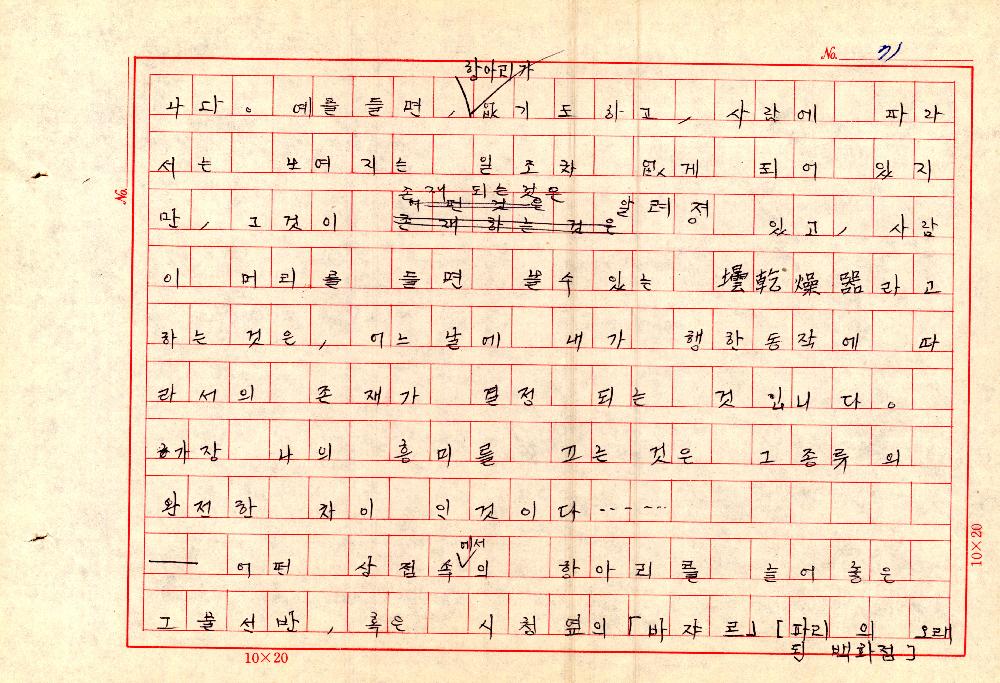 No. 71
항아리가
나다。 예를 들면, 없기도 하고, 사람에 따라
서는 보여지는 일조차 없게 되어 있지
존재 되는 것은
만, 그것이 존재하는 것은 있고, 사람
이 머리를 들면 볼수 있는 壜乾燥器라고
하는 것은, 어느 날에 내가 행한 동작에 따
라서의 존재가 결정 되는 것 입니다。
가장 나의 흥미를 끄는 것은 그 종류의
완전한 차이 인 것이다······
── 어떤 상점 속에서의 항아리를 늘어 놓은
그 물선반, 혹은 시청 옆의 「바쟈르」[파리의 오래
된 백화점]
No.
10×20
10×20